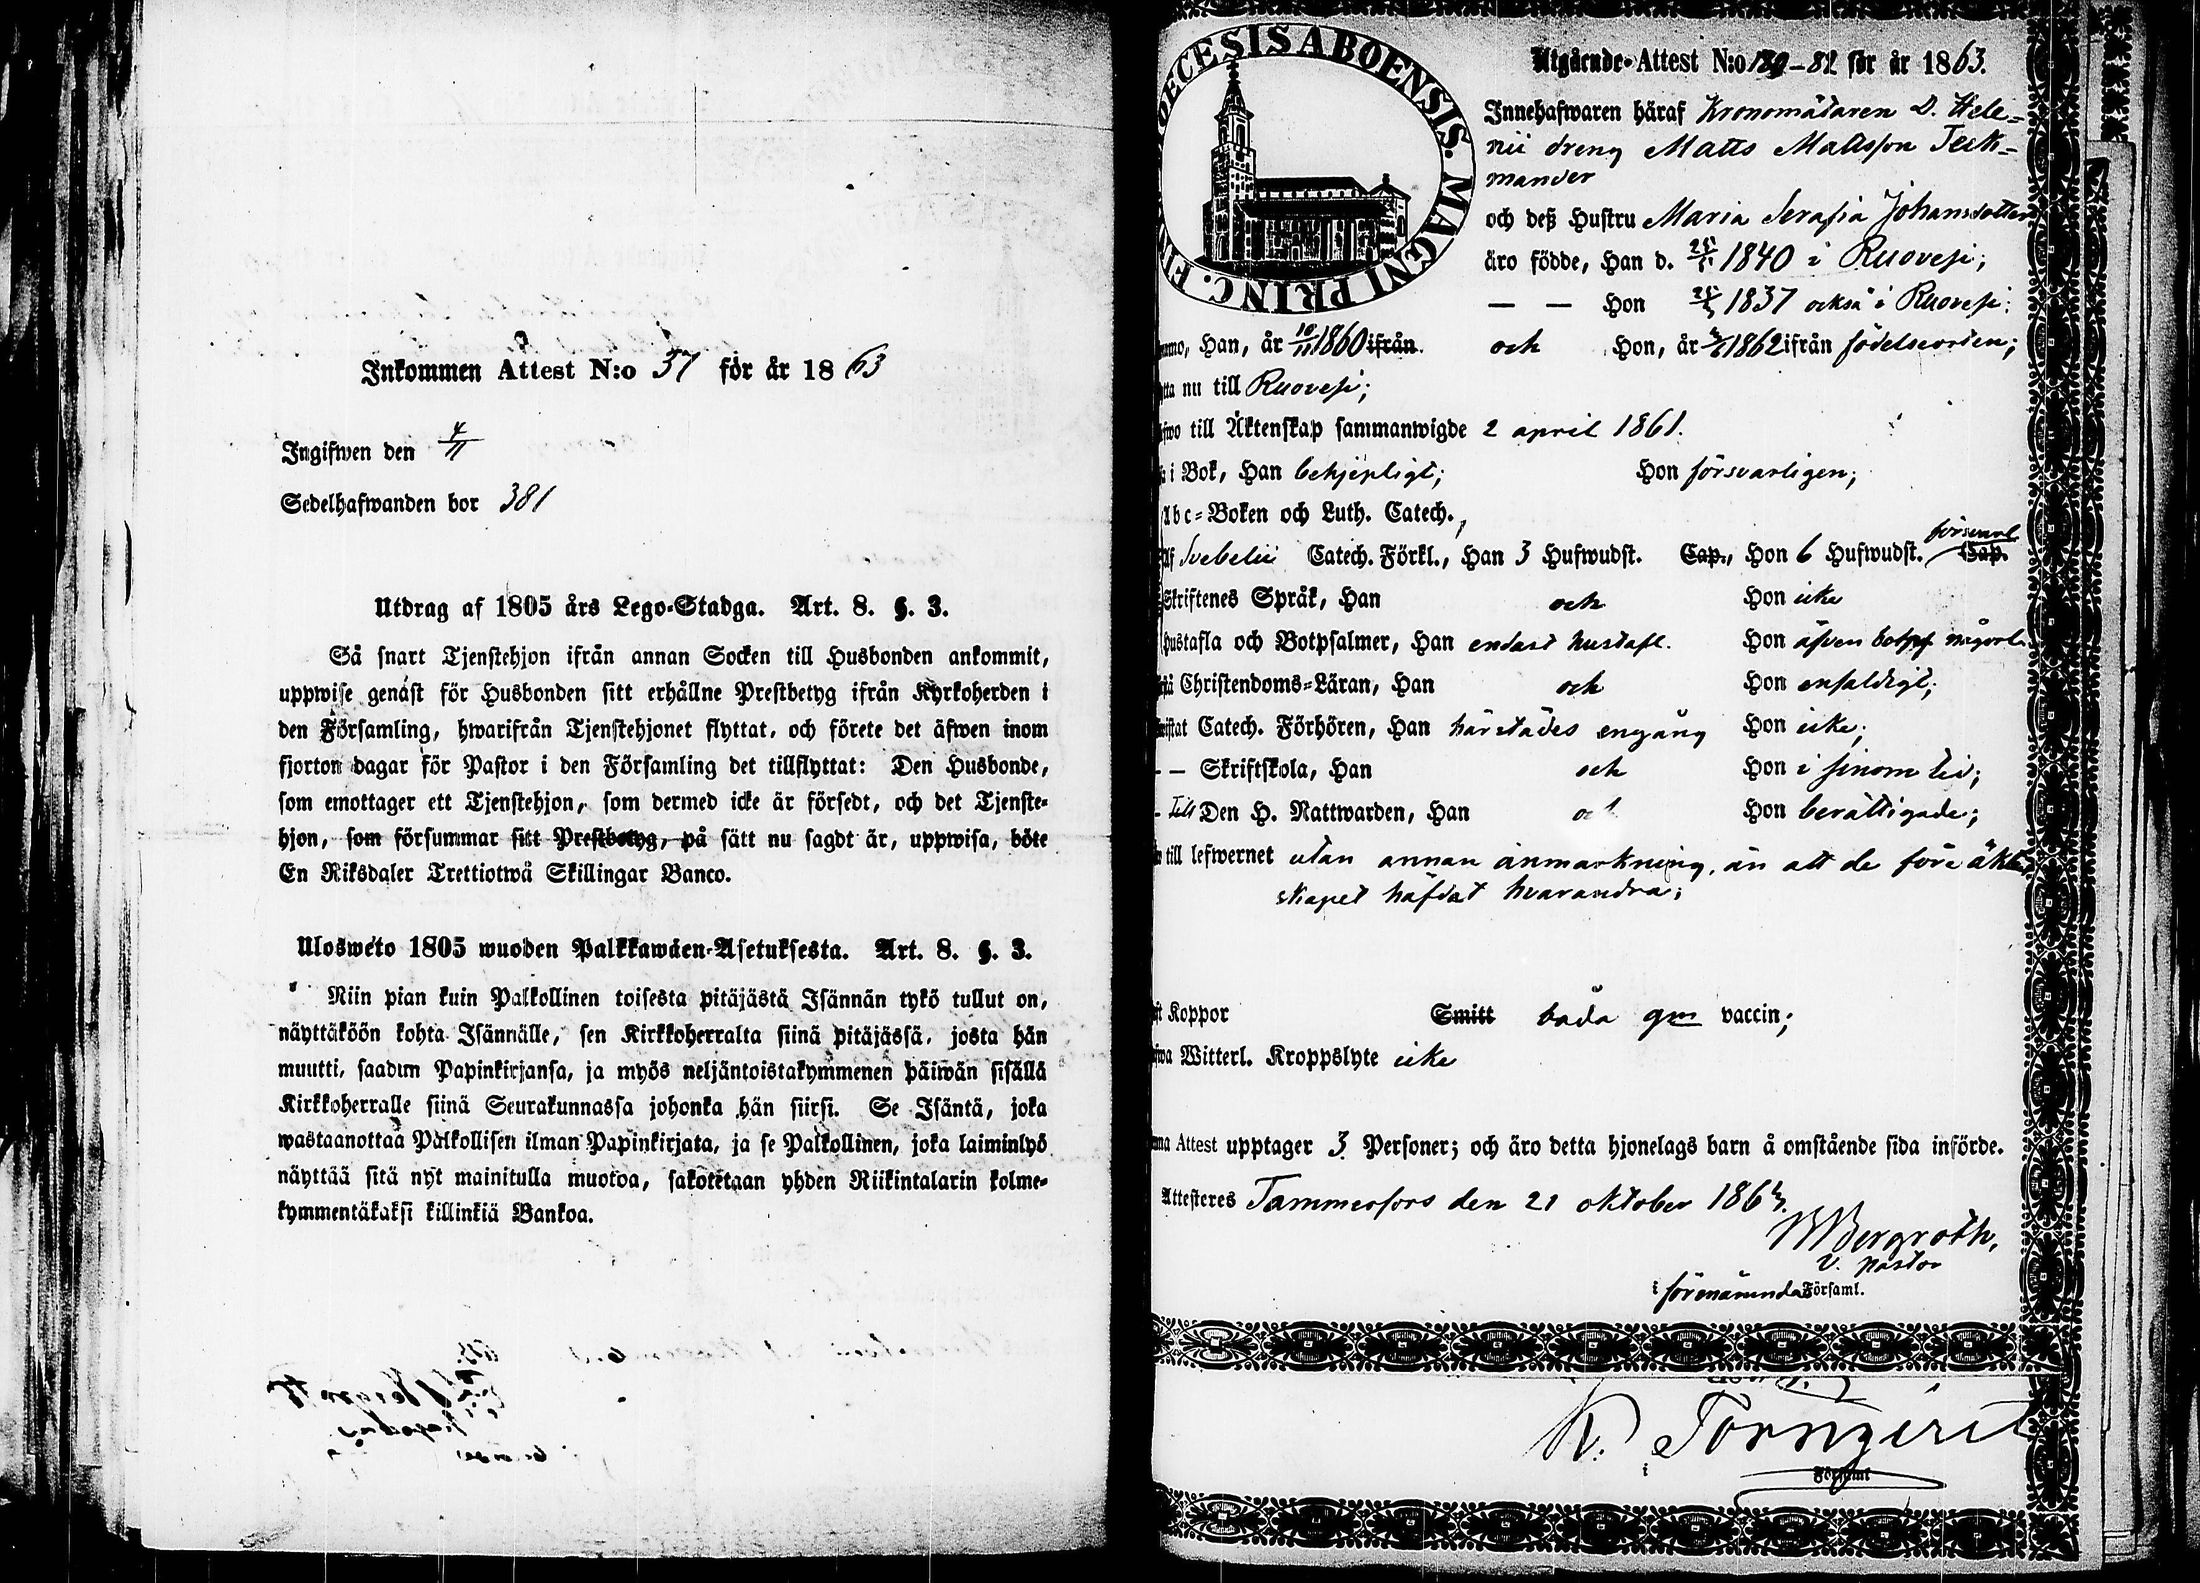 Inkommen Attest N:o 37 för år 1863
Ingifwen den 4/11
Sedelhafwanden bor 381
Utdrag af 1805 års Lego-Stadga. Art. 8. §. 3.
Så snart Tjenstehjon ifrån annan Socken till Husbonden ankommit,
uppwise genast för Husbonden sitt erhållne Prestbetyg ifrån Kyrkoherden i
den Församling, hwarifrån Tjenstehjonet flyttat, och förete det äfwen inom
fjorton dagar för Pastor i den Församling det tillflyttat: Den Husbonde,
som emottager ett Tjenstehjon, som dermed icke är försedt, och det Tjenste-
hjon, som försummar sitt Prestbetyg, på sätt nu sagdt är, uppwisa, böte
En Riksdaler Trettiotwå Skillingar Banco.
Ulosweto 1805 wuoden Palkkawäen-Asetuksesta. Art. 8. §. 3.
Niin pian kuin Palkollinen toisesta pitäjästä Isännän tykö tullut on,
näyttäköön kohta Isännälle, sen Kirkkoherralta siinä pitäjässä, josta hän
muutti, saadun Papinkirjansa, ja myös neljäntoistakymmenen päiwän sisällä
Kirkkoherralle siinä Seurakunnassa johonka hän siirsi. Se Isäntä, joka
wastaanottaa Palkollisen ilman Papinkirjata, ja se Palkollinen, joka laiminlyö
näyttää sitä nyt mainitulla muotoa, sakotetaan yhden Riikintalarin kolme-
kymmentäkaksi killinkiä Bankoa.
DIOECESIS ABOENSIS. MAGNI PRINC. FIN
Utgående-Attest N:o -82 för år 1863.
Innehafwaren häraf Kronomätaren D. Hele-
nii dreng Matts Mattsson Teck-
mander
och deß Hustru Maria Serafia Johansdotter
äro födde, Han d. 1840 i Ruovesi;
— — Hon 1837 också i Ruovesi;
Han, år 10/11 1860 ifrån och Hon, år 1862 ifrån födelseorten;
nu till Ruovesi;
till Äktenskap sammanwigde 2 april 1861.
i Bok, Han behjepligt; Hon försvarligen;
Abc-Boken och Luth. Catech.,
Af Svebelii Catech. Förkl., Han 3 Hufwudst. Cap., Hon 6 Hufwudst. försvarl Cap.
Skriftenes Språk, Han och Hon icke
Hustafla och Botpsalmer, Han endast hustafl. Hon äfven botps någorl.
Christendoms-Läran, Han och Hon enfaldigt;
Catech. Förhören, Han härstädes engång Hon icke;
— Skriftskola, Han och Hon i sinom tid;
- Till Den H. Nattwarden, Han och Hon berättigade;
till lefwernet utan annan anmärkning, än att de före äkten
skapet häfdat hvarandra;
Koppor Smitt båda gm vaccin;
Witterl. Kroppslyte icke
Attest upptager 3 Personer; och äro detta hjonelags barn å omstående sida införde.
Attesteres Tammerfors den 21 oktober 1863.
Bergroth,
v. pastor
i förenämnda Församl.
K.
i Församl